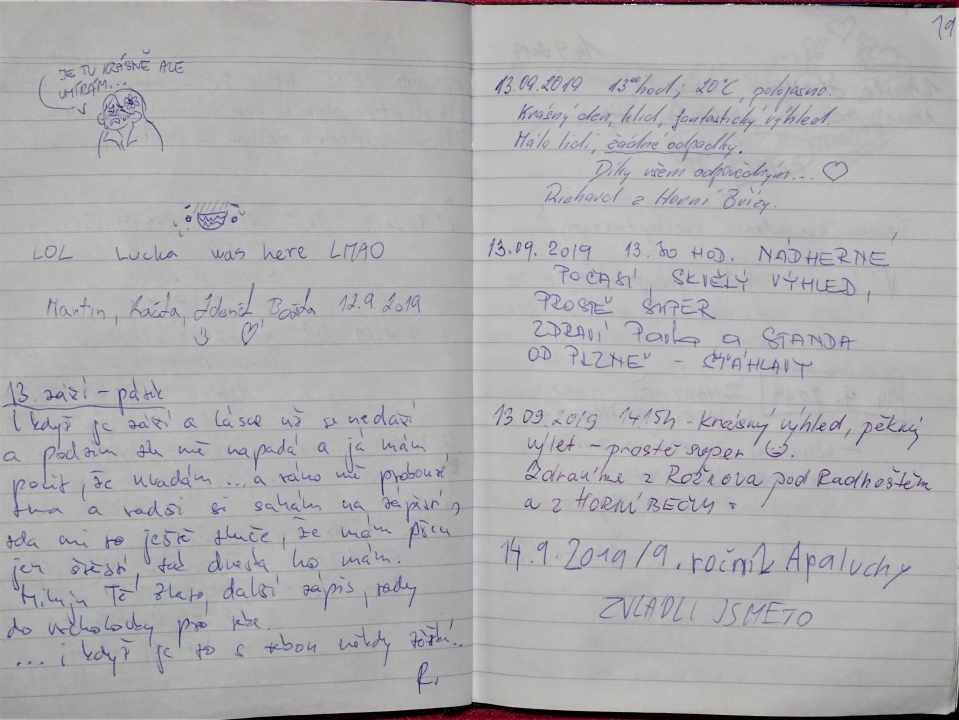 JE TU KRÁSNĚ ALE
UMÍRÁM...
LOL Lucka was here LMAO
Martin, Káťa, Zdeněk, 12.9.2019
13. září - pátek
I když je září a lásce už se nedaří
a podzim zle mě napadá a já mám
pocit, že uvadám ... a ráno mě probouzí
tma a radši si sahám na zápěstí,
zda mi to ještě tluče, že mám přeci
jen štěstí, tak dneska ho mám.
Miluju Tě Zlato, další zápis, tady
do vrcholovky pro tebe.
... i když je to s tebou někdy těžké..
R.
19
13.09.2019 13⁰⁰hod, 20°C, polojasno.
Krásný den, klid, fantastický výhled.
Málo lidí, žádné odpadky.
Díky všem odpovědným...
Richard z Horní Břízy.
13.09.2019 13.30 HOD. NÁDHERNÉ
POČASÍ, SKVĚLÝ VÝHLED,
PROSTĚ SUPER
ZDRAVÍ Pavla a STANDA
OD PLZNĚ - ŠŤÁHLAVY
13 09.2019 1415h - krásný výhled, pěkný
výlet - prostě super.
Zdravíme z Rožnova pod Radhoštěm
a z HORNÍ BEČVY.
14.9.2019/9. ročník Apaluchy
ZVLÁDLI JSME TO